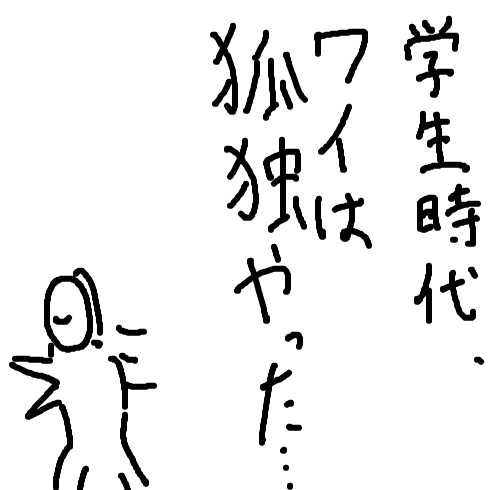 学生時代、
ワイは
狐独やった…